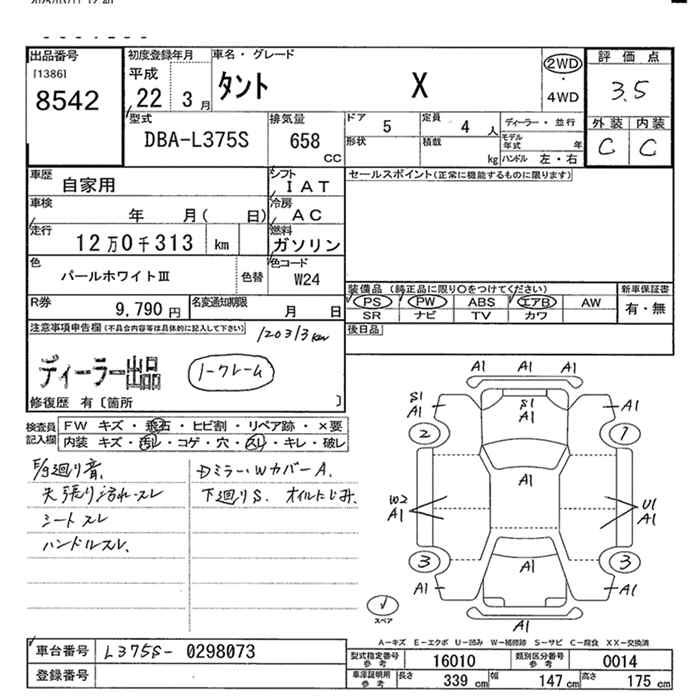 出品番号
[1386]
8542
初度登録年月
平成
22 3月
車名・グレード
タント X
2WD
・
4WD
評価点
3.5
外装 内装
C C
型式
DBA-L375S
排気量
658
CC
ドア
5
定員
4 人
形状
積載
kg
ディーラー・並行
モデル年式 年
ハンドル 左・右
車歴
自家用
シフト
IAT
車検
年 月( 日)
冷房
AC
走行
12万0千313 km
燃料
ガソリン
色
パールホワイトⅢ
色替
色コード
W24
R券
9,790 円
名変通知期限
月 日
セールスポイント(正常に機能するものに限ります)
装備品 (純正品に限り○をつけてください)
PS PW ABS エアB AW
SR ナビ TV カワ
新車保証書
有・無
後日品
注意事項申告欄(不具合内容等は具体的に記入して下さい)
120313km
ディーラー出品
ノークレーム
修復歴 有〔箇所 〕
検査員記入欄
FW キズ・飛石・ヒビ割・リペア跡・×要
内装 キズ・汚れ・コゲ・穴・スレ・キレ・破レ
天張り汚れ・スレ
シートスレ
ハンドルスレ.
Dミラー・WカバーA.
下廻りS. オイルにじみ.
A1 A1 A1
S1
A1
S1
A1
A1
2
1
A1
W2
A1
U1
A1
3
3
A1
A1
A1
A1
スペア
A-キズ E-エクボ U-凹み W-補修跡 S-サビ C-腐食 XX-交換済
車台番号
L375S- 0298073
登録番号
型式指定番号
参考
16010
類別区分番号
参考
0014
車庫証明用
参考
長さ
339 cm
幅
147 cm
高さ
175 cm